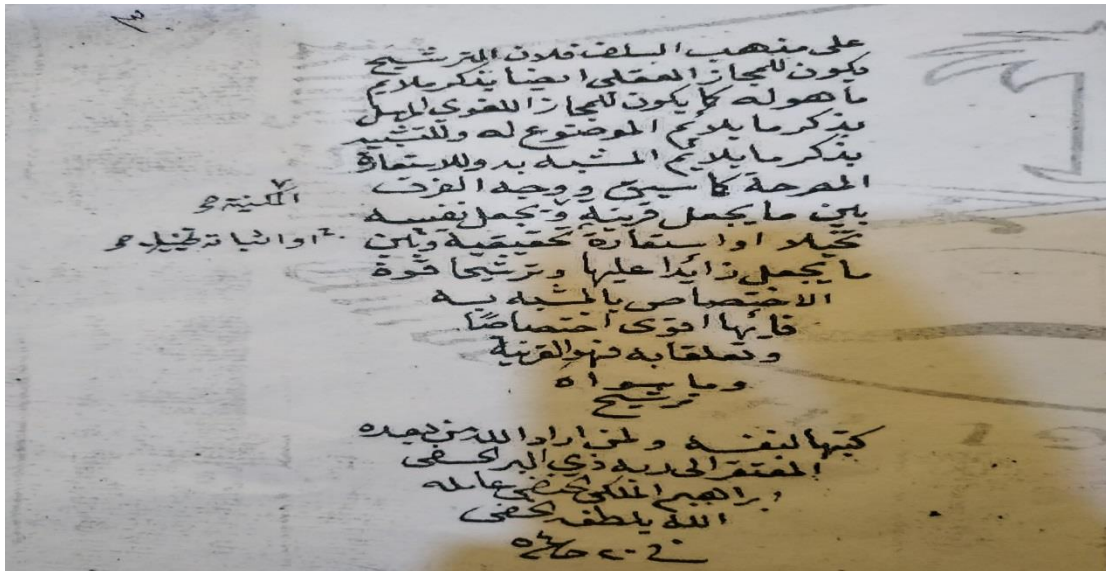 على مذهب السلف فلان الترشيح
يكون للمجاز العقلي ايضا بذكر ملايم
ما هو له كما يكون للمجاز اللغوي المرسل
بذكر ما يلايم الموضوع له وللتشبيه
بذكر ما يلايم المشبه به وللاستعارة
المصرحة كما سبق ووجه الفرق
المكنية صح
بين ما يجعل قرينة ويجعل نفسه
تخيلا او استعارة تحقيقية وبين
او اثباته تخييل صح
ما يجعل زايدا عليها وترشيحا قوة
الاختصاص بالمشبه به
فايها اقوى اختصاصا
وتعلقا به فهو القرينة
وما سواه
ترشيح
كتبها لنفسه ولمن اراد الله من بعده
المفتقر الى ربه ذي البر الحفي
ابراهيم الحنفي عامله
الله بلطفه الخفي